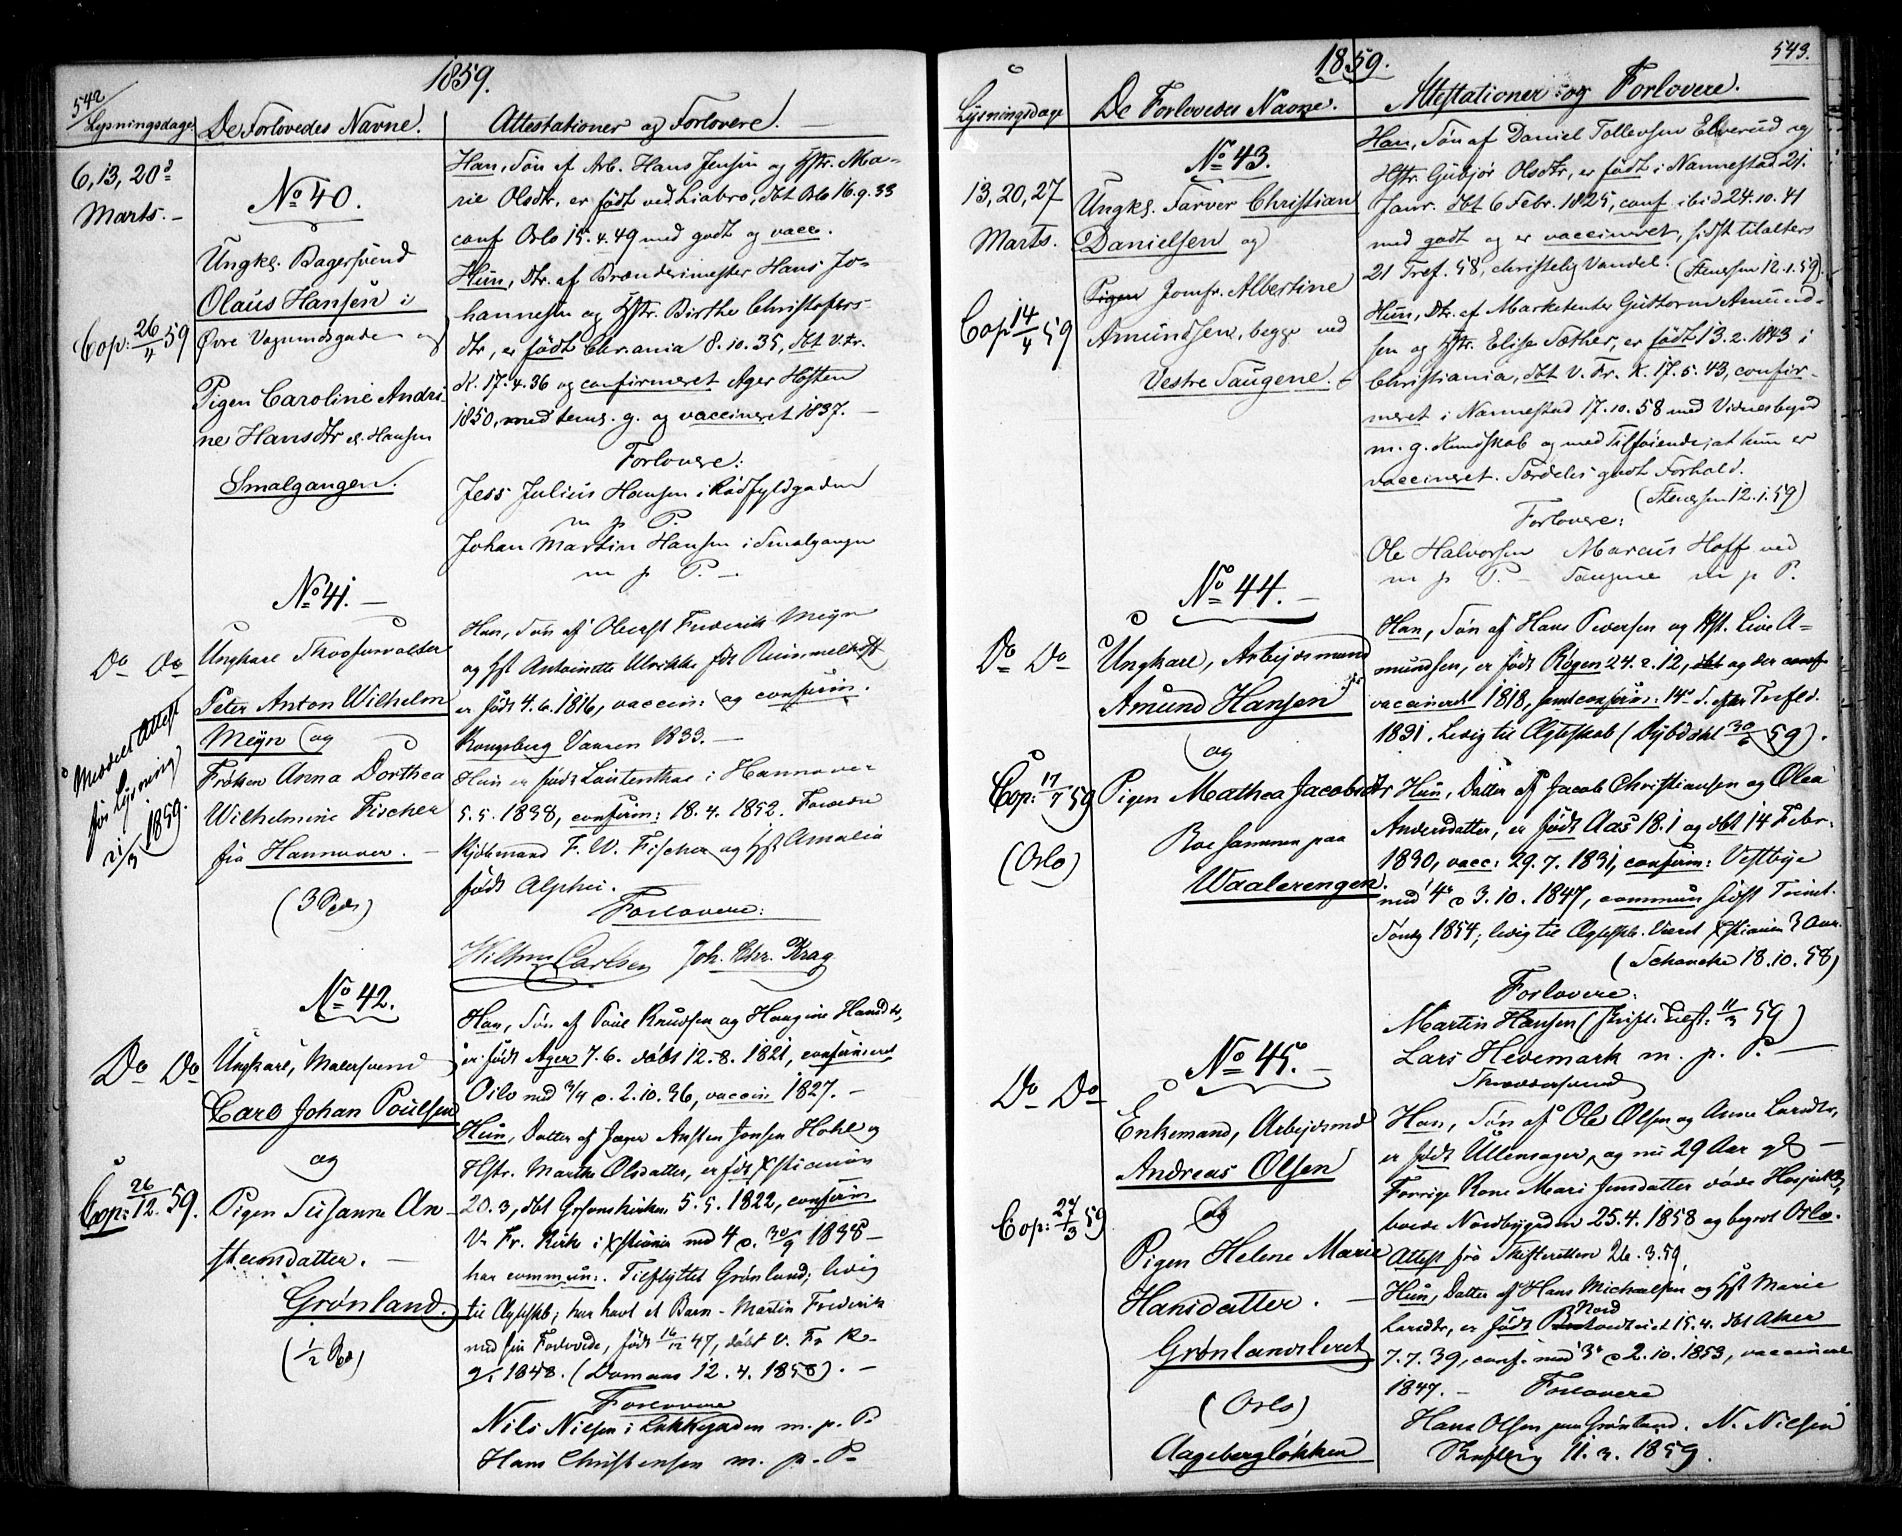 542
1859.
Lysningsdage. De Forlovedes Navne. Attestationer og Forlovere.
6, 13, 20de
Marts. -
Cop: 26/4 59
No 40.
Ungkl. Bagersvend
Olaus Hansen i
Øvre Vognmdsgaden og
Pigen Caroline Andri
ne Hansdtr el. Hansen
Smalgangen.
Han, Søn af Arb. Hans Jensen og Hstr. Ma-
rie Olsdtr, er født ved Liabro, dbt Oslo 16.9.33
conf Oslo 15.4.49 med godt og vacc.
Hun, Dtr. af Brænderimester Hans Jo-
hannesen og Hstr. Birthe Christofers
dtr, er født Chr.ania 8.10.35, dbt V. Fr.
K. 17.4.36 og confirmeret Ager Høsten
1850, med tems. g. og vaccineret 1837. -
Forlovere:
Jess Julius Hansen i Rødfyldgaden
m p P.
Johan Martin Hansen i Smalgangen
m p P. -
Do Do
Meddelt Attest
for Lysning
21/3 1859.
No 41. -
Ungkarl
Peter Anton Wilhelm
Meyn og
Frøken Anna Dorthea
Wilhelmine Fischer
fra Hannover. -
(3 Spds)
Han, Søn af Oberst Frederik Meyn
og Hst Antoinette Ulrikke født
er født 4.6.1816, vaccin: og confirm.
Kongsberg Vaaren 1833. -
Hun er født Lautenthal i Hannover
5.5.1838, confirm: 18.4.1852. Forældre
Kjøbmand F. W. Fischer og Hst Amalia
født Alphei.
Forlovere:
Wilhm Carlsen Joh. Chr. Krag
Do Do
Cop: 26/12 59.
No 42.
Ungkarl, Malersvend
Carl Johan Poulsen
og
Pigen Susanne An-
steensdatter. -
Grønland.
(1/2 Spd)
Han, Søn af Poul Knudsen og Haagine Hansdtr,
er født Ager 7.6. døbt 12.8.1821, confirmeret
Oslo med 3/4 c. 2.10.36, vaccin 1827. -
Hun, Datter af Jæger Ansten Jonsen Hohl og
Hstr. Marthe Olsdatter, er født Xstiania
20.3, dbt Garnskirken 5.5.1822, confirm
V. Fr. Kirk i Xstiania med 4 c. 30/9 1838 -
har commun:. Tilflyttet Grønland; ledig
til Ægteskb; har havt et Barn - Martin Frederik
med sin Forlovede, født 16/12 47, døbt V. Fr. K-
1848. (Damaas 12.4.1858). -
Forlovere
Nils Nielsen i Lakkegaden m. p. P.
Hans Christensen m. p. P.
543.
1859.
Lysningsdage De Forlovedes Navne. Attestationer og Forlovere.
13, 20, 27
Marts.
Cop 14/4 59
No 43.
Ungkl. Farver Christian
Danielsen og
Pigen Jomfr. Albertine
Amundsen, begge ved
Vestre Saugene.
Han, Søn af Daniel Tollevsen Elverud og
Hstr. Gubjør Olsdtr, er født i Nannestad 21.
Janr. dbt 6 Febr. 1825, conf ibid 24.10.41
med godt og er vaccineret, sidst tilalters
21 Tref. 58, christelig Vandel. (Stenersen 12.1.59).
Hun, Dtr. af Marketenter Guttorm Amund-
sen og Hstr. Elise Sæther, er født 13.2.1843 i
Christiania, dbt V. Fr. K. 17.5.43, confir-
meret i Nannestad 17.10.58 med Vidnesbyrd
m. g. Kundskab og med Tilføiende, at hun er
vaccineret. Særdeles godt Forhold.
(Stenersen 12.1.59)
Forlovere:
Ole Halvorsen Marcus Hoff ved
m p P. - Saugene m p P.
Do Do
Cop: 17/7 59
(Oslo)
No 44. -
Ungkarl, Arbejdsmand
Amund Hansen
og
Pigen Mathea Jacobsdtr
Boe sammen paa
Waalerengen.
Han, Søn af Hans Pedersen og Hst. Live A-
mundsen, er født Røgen 24.2.12, dbt og der conf
vaccineret 1818, confirm: 14de S. efter Trefld.
1831. Ledig til Ægteskab (Dybdahl 30/6 59).
Hun, Datter af Jacob Christiansen og Olea
Andersdatter, er født Aas 18.1 og dbt 14 Febr.
1830, vacc: 29.7.1831, confirm: Vestbye
med 4 c 3.10.1847, commun sidst Trinit.
Søndg 1854; ledig til Ægteskb. Været Xstiania 3 Aar.
(Schancke 18.10.58)
Forlovere:
Martin Hansen (skriftl. Tilst: 11/3 59)
Lars Hevemark m. p. P. -
Do Do
Cop: 27/3 59
No 45. -
Enkemand, Arbejdsmd
Andreas Olsen
og
Pigen Helene Marie
Hansdatter. -
Grønlandsleret
(Oslo)
Aagebergløkken
Han, Søn af Ole Olsen og Anne Larsdtr,
er født Ullensager, og nu 29 Aar gl -
Forrige Kone Mari Jensdatter døde
25.4.1858 og begrvt Oslo.
Attest fra Skifteretten 26.3.59.
Hun, Datter af Hans Michaelsen og Hst Marie
Larsdtr, er født Nord 15.4. dbt Aker
7.7.39, conf. med 3 c 2.10.1853, vaccineret
1847. - Forlovere
Hans Olsen paa Grønland. N. Nilsen
11.3.1859.